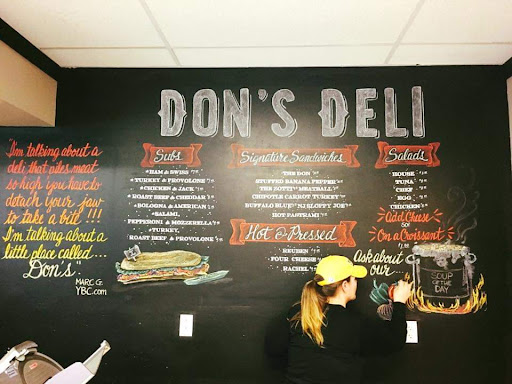 DON'S DELI
"I'm talking about a
deli that piles meat
so high you have to
detach your jaw
to take a bite !!!
I'm talking about a
little place called...
Don's"
MARC G.
YBC.com
Subs
HAM & SWISS
TURKEY & PROVOLONE
CHICKEN & JACK
ROAST BEEF & CHEDDAR
BOLOGNA & AMERICAN
SALAMI,
PEPPERONI & MOZZERELLA
TURKEY,
ROAST BEEF & PROVOLONE
Signature Sandwiches
THE DON
STUFFED BANANA PEPPER
THE DOTTI "MEATBALL"
CHIPOTLE CARROT TURKEY
BUFFALO BLUE
SLOPPY JOE
HOT PASTRAMI
Hot & Pressed
REUBEN
FOUR CHEESE
RACHEL
Salads
HOUSE
TUNA
CHEF
EGG
CHICKEN
Add Cheese
or
On a Croissant
Ask about
our...
SOUP
OF THE
DAY